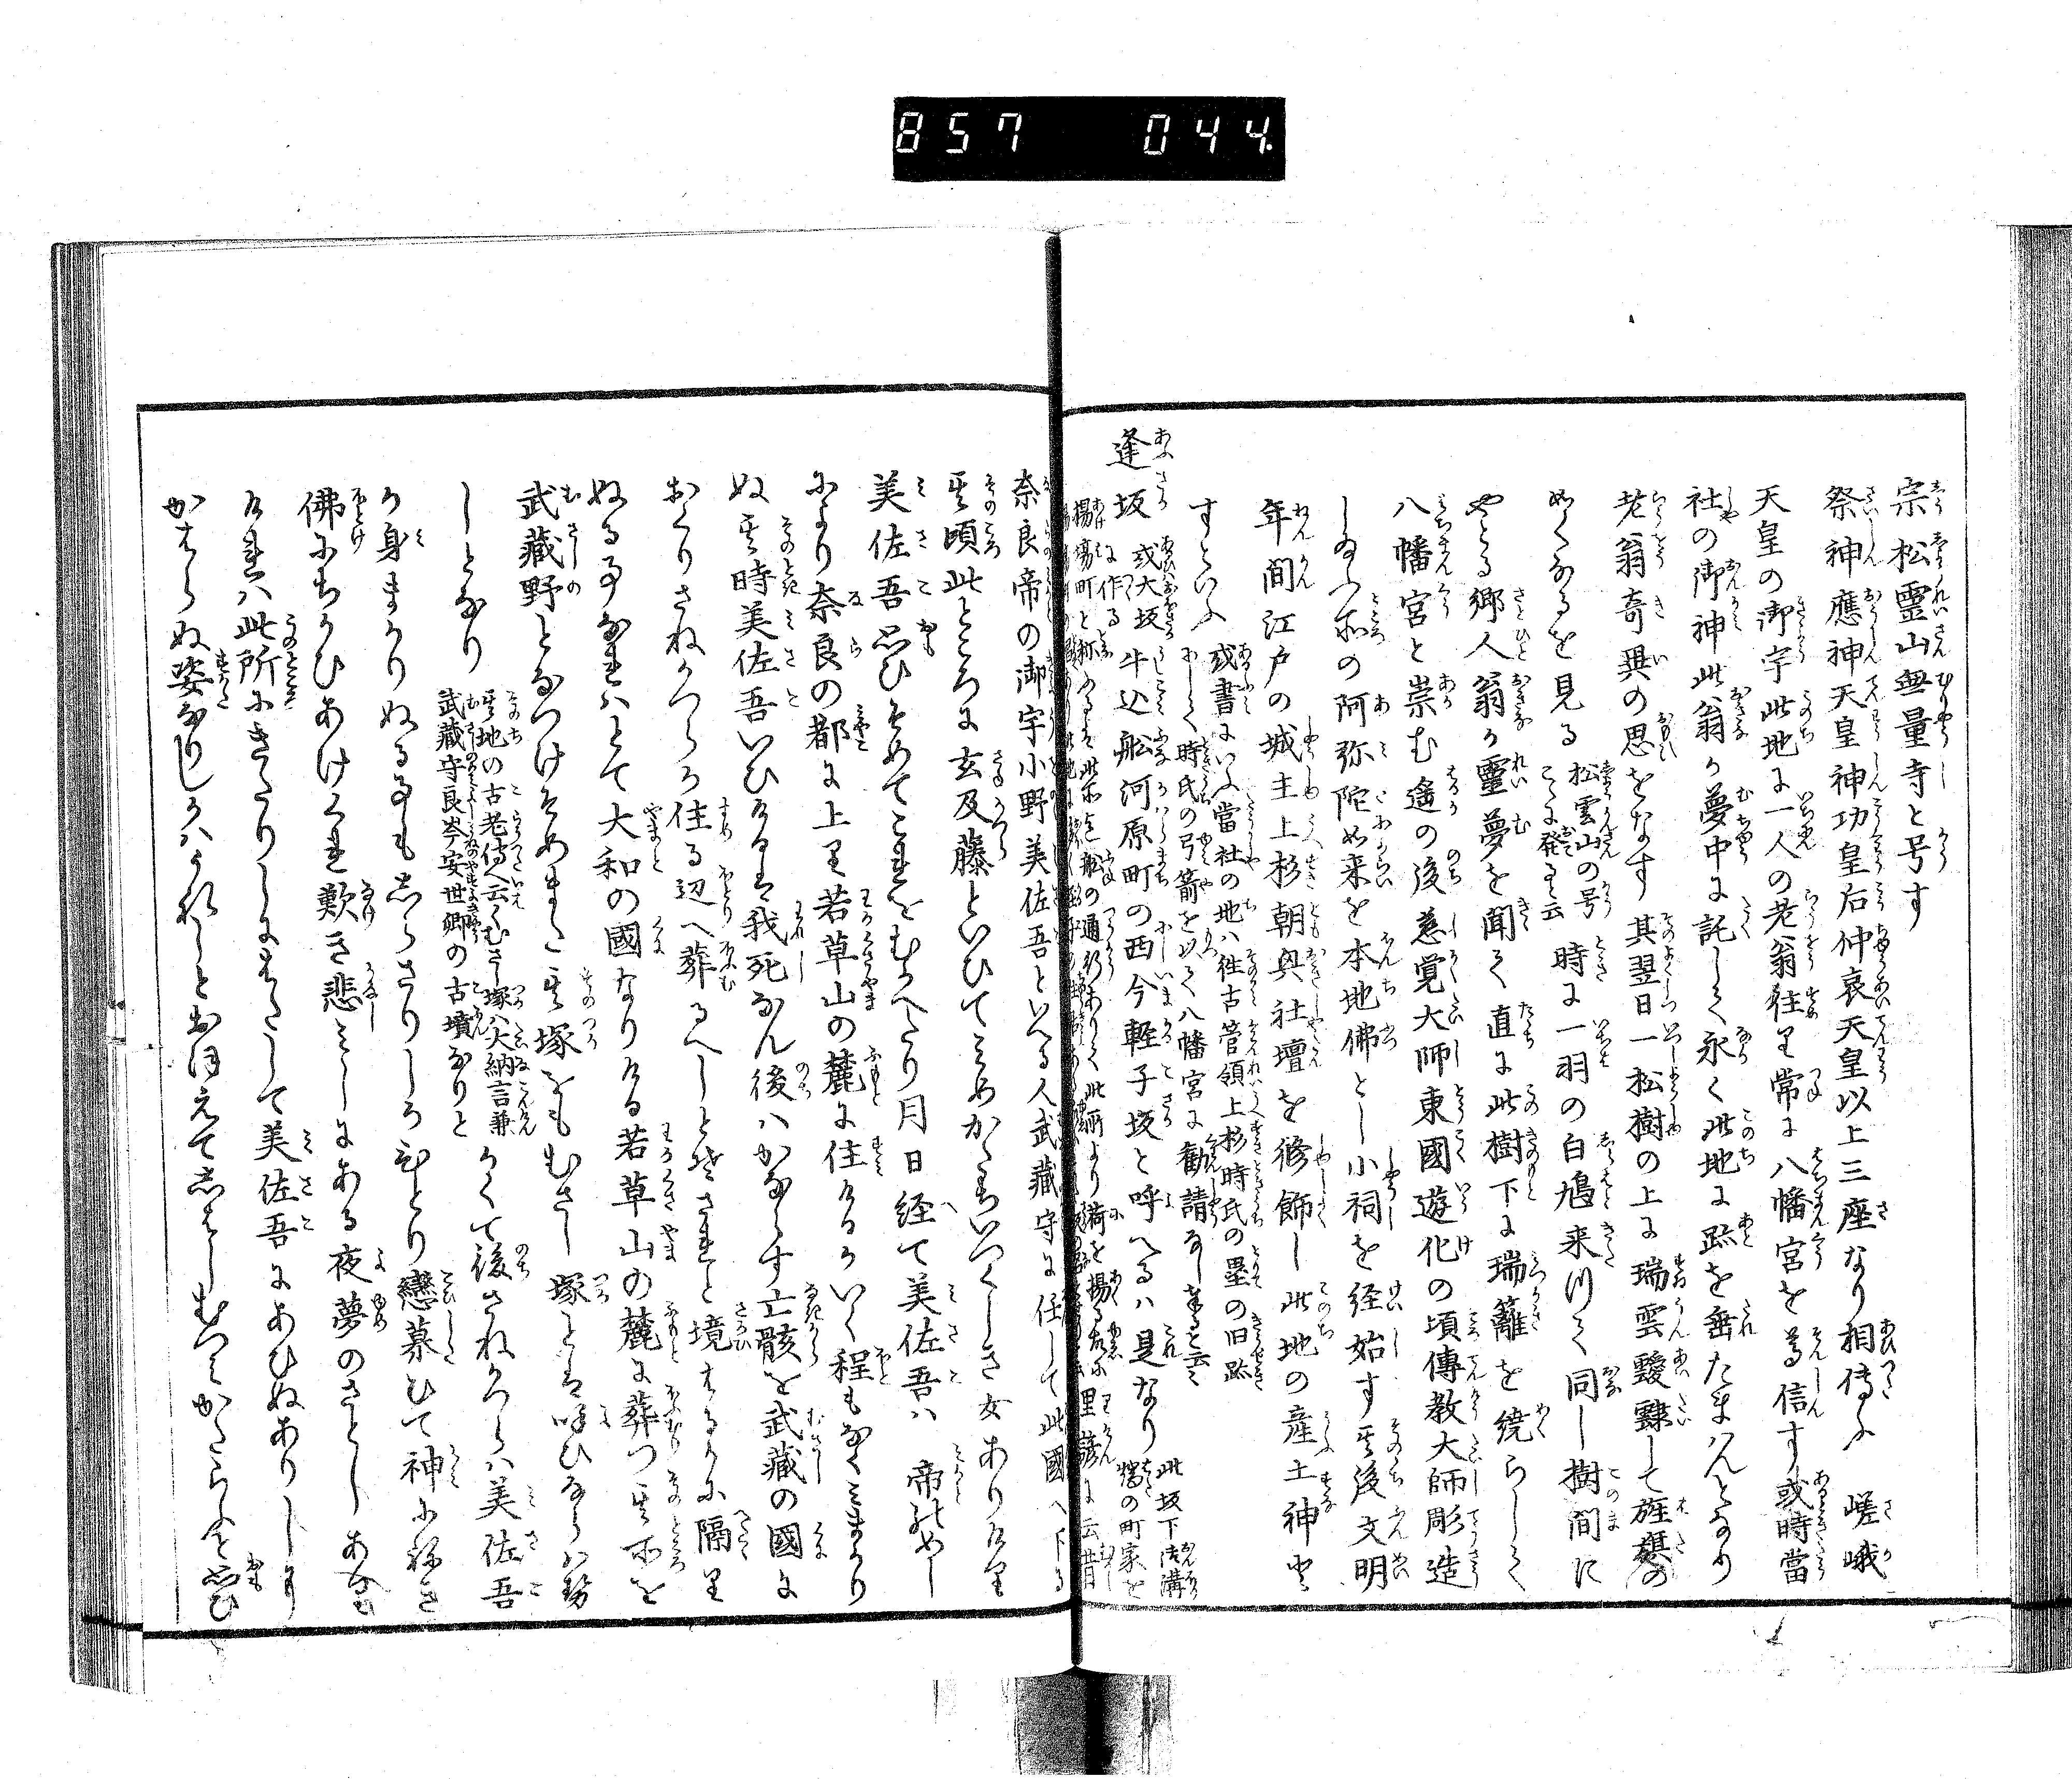 857 044.
宗松靈山無量寺と号す
祭神應神天皇神功皇后仲哀天皇以上三座なり相傳ふ 嵯峨
天皇の御宇此地に一人の老翁住り常に八幡宮を尊信す或時當
社の御神此翁か夢中に託して永く此地に跡を垂たまはんとなり
老翁奇異の思をなす其翌日一松樹の上に瑞雲靉靆して旌旗の
如くなるを見る
松雲山の号
こゝに発る云
時に一羽の白鳩来つて同し樹間に
やとる郷人翁か靈夢を聞て直に此樹下に瑞籬を繞らして
八幡宮と崇む遥の後慈覚大師東國遊化の頃傳教大師彫造
しゐふ所の阿弥陀如来を本地佛とし小祠を経始す其後文明
年間江戸の城主上杉朝興社壇を修飾し此地の産土神と
すといふ
或書にいふ當社の地ハ往古管領上杉時氏の壘の旧跡
にして時氏の弓箭を以て八幡宮に勧請なし奉ると云々
逢坂
或大坂
に作る
牛込舩河原町の西今軽子坂と呼へるハ是なり
此坂下御溝
端の町家を
揚場町と称するハ此所迄舩の通行ありて此所より荷を揚る故に里諺に云昔
奈良帝の御宇小野美佐吾といへる人武藏守に任して此國へ下る
其頃此ところに玄及藤といひてみめかたちいつくしき女ありけり
美佐吾思ひそめてこれをむかへたり月日経て美佐吾ハ 帝のめし
によりて奈良の都に上り若草山の麓に住けるかいく程もなくみまかり
ぬ其時美佐吾いひけるハ我死なん後ハかならす亡骸を武藏の國に
おくりさねかつらか住る辺へ葬るへしとされと境はるかに隔り
ぬる事なれハとて大和の國なりける若草山の麓に葬つ其所を
武藏野となつけそめまた其塚をもむさし塚とハ呼ひならハせ
しとなり
其地の古老傳へ云くむさし塚ハ大納言兼
武藏守良岑安世卿の古墳なりと
かくて後さねかつらハ美佐吾
か身まかりぬる事もしらさりしかひとり戀慕ひて神にねき
佛にちかひあけくれ歎き悲みしにある夜夢のさとしあ
けれハ此所にきたりしにはたして美佐吾にあひぬありしに
かはらぬ姿なりしかハうれしとおほえてしはしむつみかたらふと思ひ